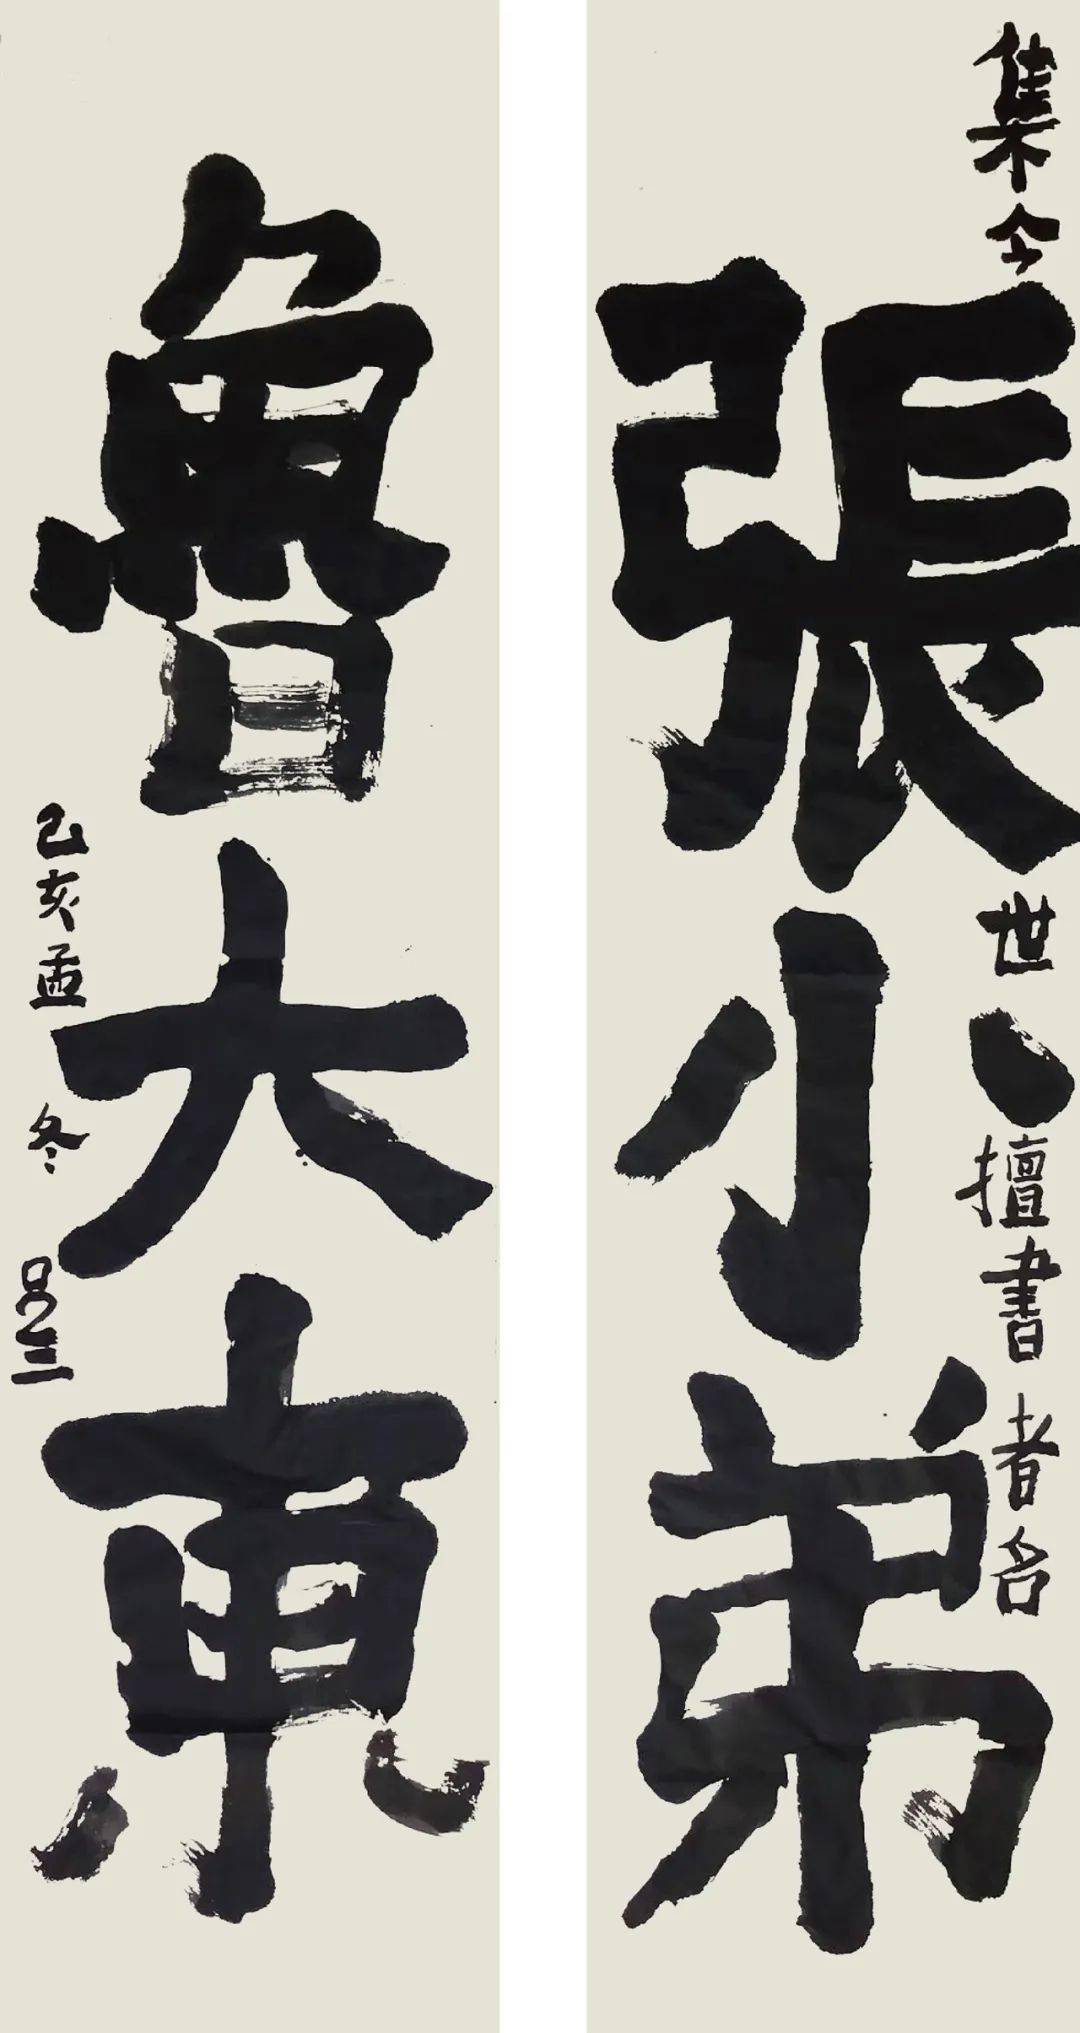 集今世擅書者名
張小弟
魯大東
己亥孟冬
呂三